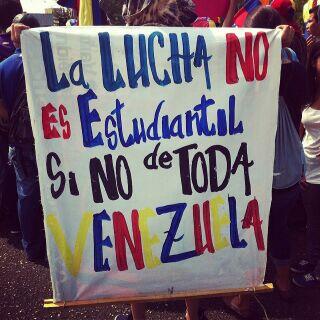 La LUCHA NO
ES EstudiantiL
Si NO de TODA
VENEZUELA